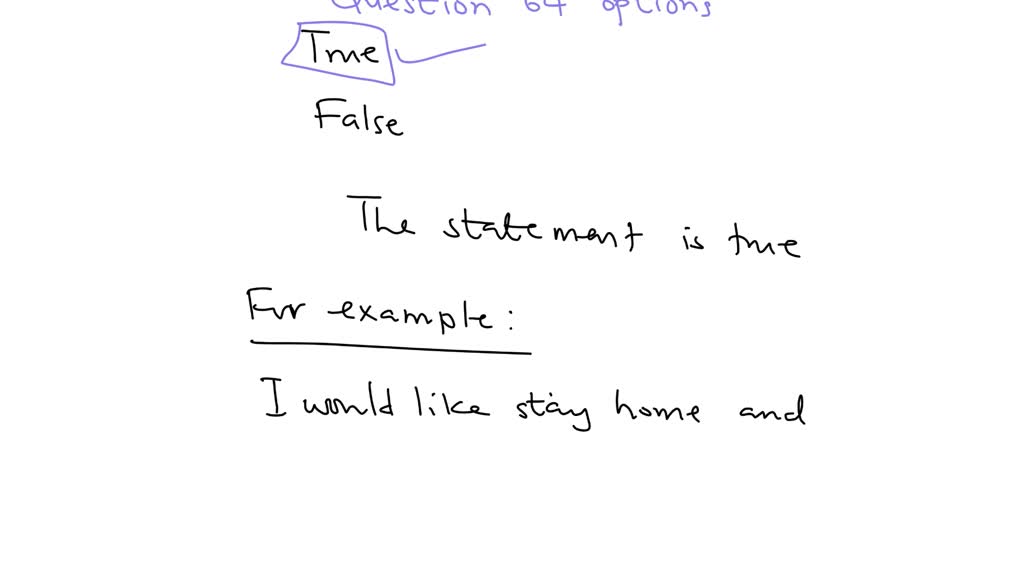 Question 64 options
True
False
The statement is true
For example:
I would like stay home and